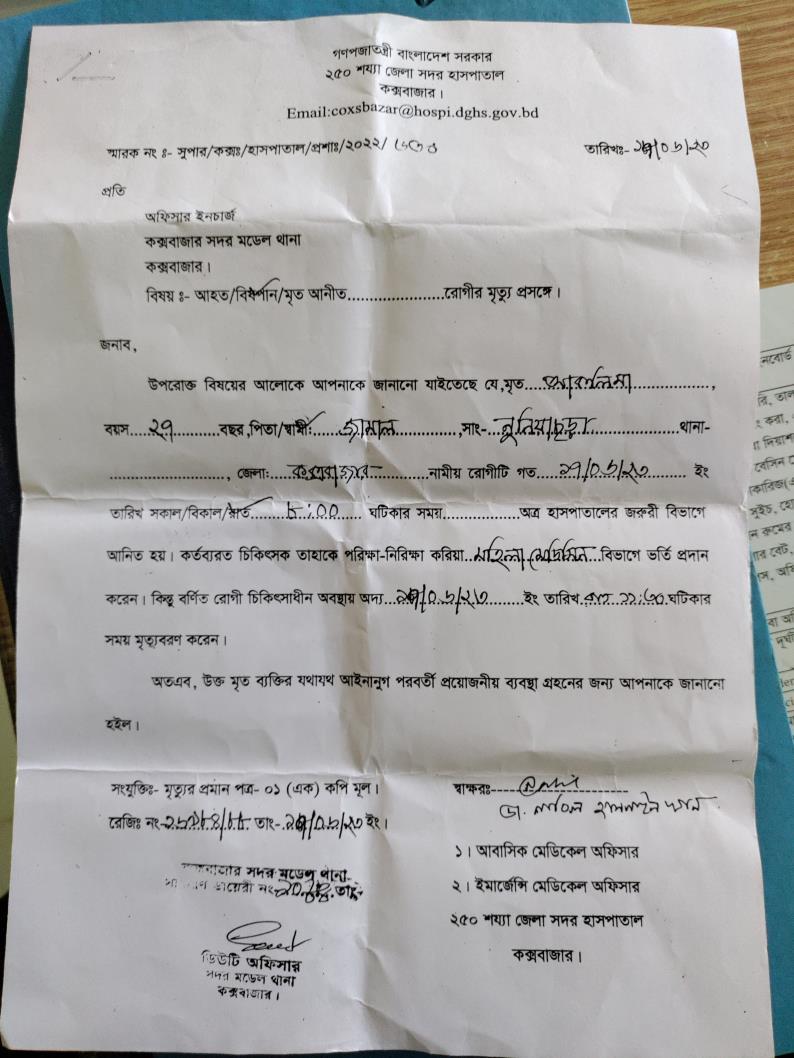 গণপ্রজাতন্ত্রী বাংলাদেশ সরকার
২৫০ শয্যা জেলা সদর হাসপাতাল
কক্সবাজার।
Email:coxsbazar@hospi.dghs.gov.bd
স্মারক নং ঃ- সুপার/কক্সঃ/হাসপাতাল/প্রশাঃ/২০২২/
তারিখঃ-
প্রতি
অফিসার ইনচার্জ
কক্সবাজার সদর মডেল থানা
কক্সবাজার।
বিষয় ঃ- আহত/বিষপান/মৃত আনীত......................রোগীর মৃত্যু প্রসঙ্গে।
জনাব,
উপরোক্ত বিষয়ের আলোকে আপনাকে জানানো যাইতেছে যে,মৃত
বয়স....২৭..........বছর,পিতা/স্বামী:......জামাল..............,সাং-...নুনিয়াছড়া....................থানা-
........................., জেলা:....কক্সবাজার............নামীয় রোগীটি গত....২৭/০৬/২৩........ ইং
তারিখ সকাল/বিকাল/রাত.......৮:০০..... ঘটিকার সময়.................অত্র হাসপাতালের জরুরী বিভাগে
আনিত হয়। কর্তব্যরত চিকিৎসক তাহাকে পরিক্ষা-নিরিক্ষা করিয়া...মহিলা মেডিসিন...বিভাগে ভর্তি প্রদান
করেন। কিন্তু বর্ণিত রোগী চিকিৎসাধীন অবস্থায় অদ্য...২৭/০৬/২৩........ইং তারিখ.রাত ১১:৩০.ঘটিকার
সময় মৃত্যুবরণ করেন।
অতএব, উক্ত মৃত ব্যক্তির যথাযথ আইনানুগ পরবর্তী প্রয়োজনীয় ব্যবস্থা গ্রহনের জন্য আপনাকে জানানো
হইল।
সংযুক্তিঃ- মৃত্যুর প্রমান পত্র- ০১ (এক) কপি মূল।
রেজিঃ নং- তাং- ইং।
স্বাক্ষরঃ
ডা.
১। আবাসিক মেডিকেল অফিসার
২। ইমার্জেন্সি মেডিকেল অফিসার
২৫০ শয্যা জেলা সদর হাসপাতাল
কক্সবাজার।
সদর মডেল থানা
ডায়েরী নং তাং-
ডিউটি অফিসার
সদর মডেল থানা
কক্সবাজার।